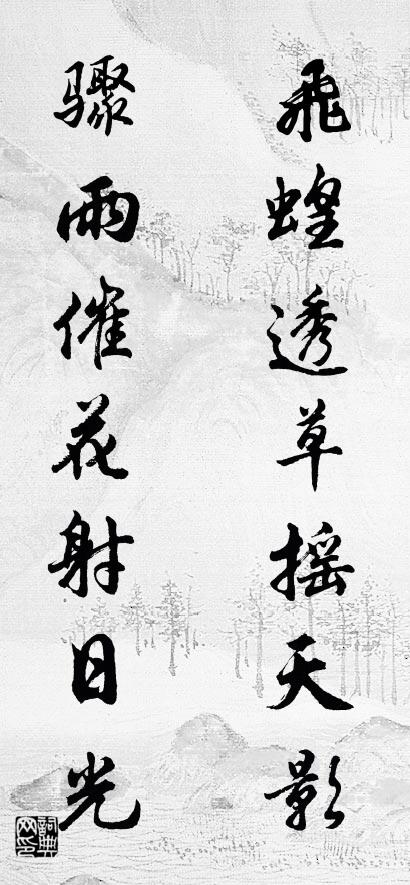 飛蝗透草摇天影
驟雨催花射日光
詞典網印